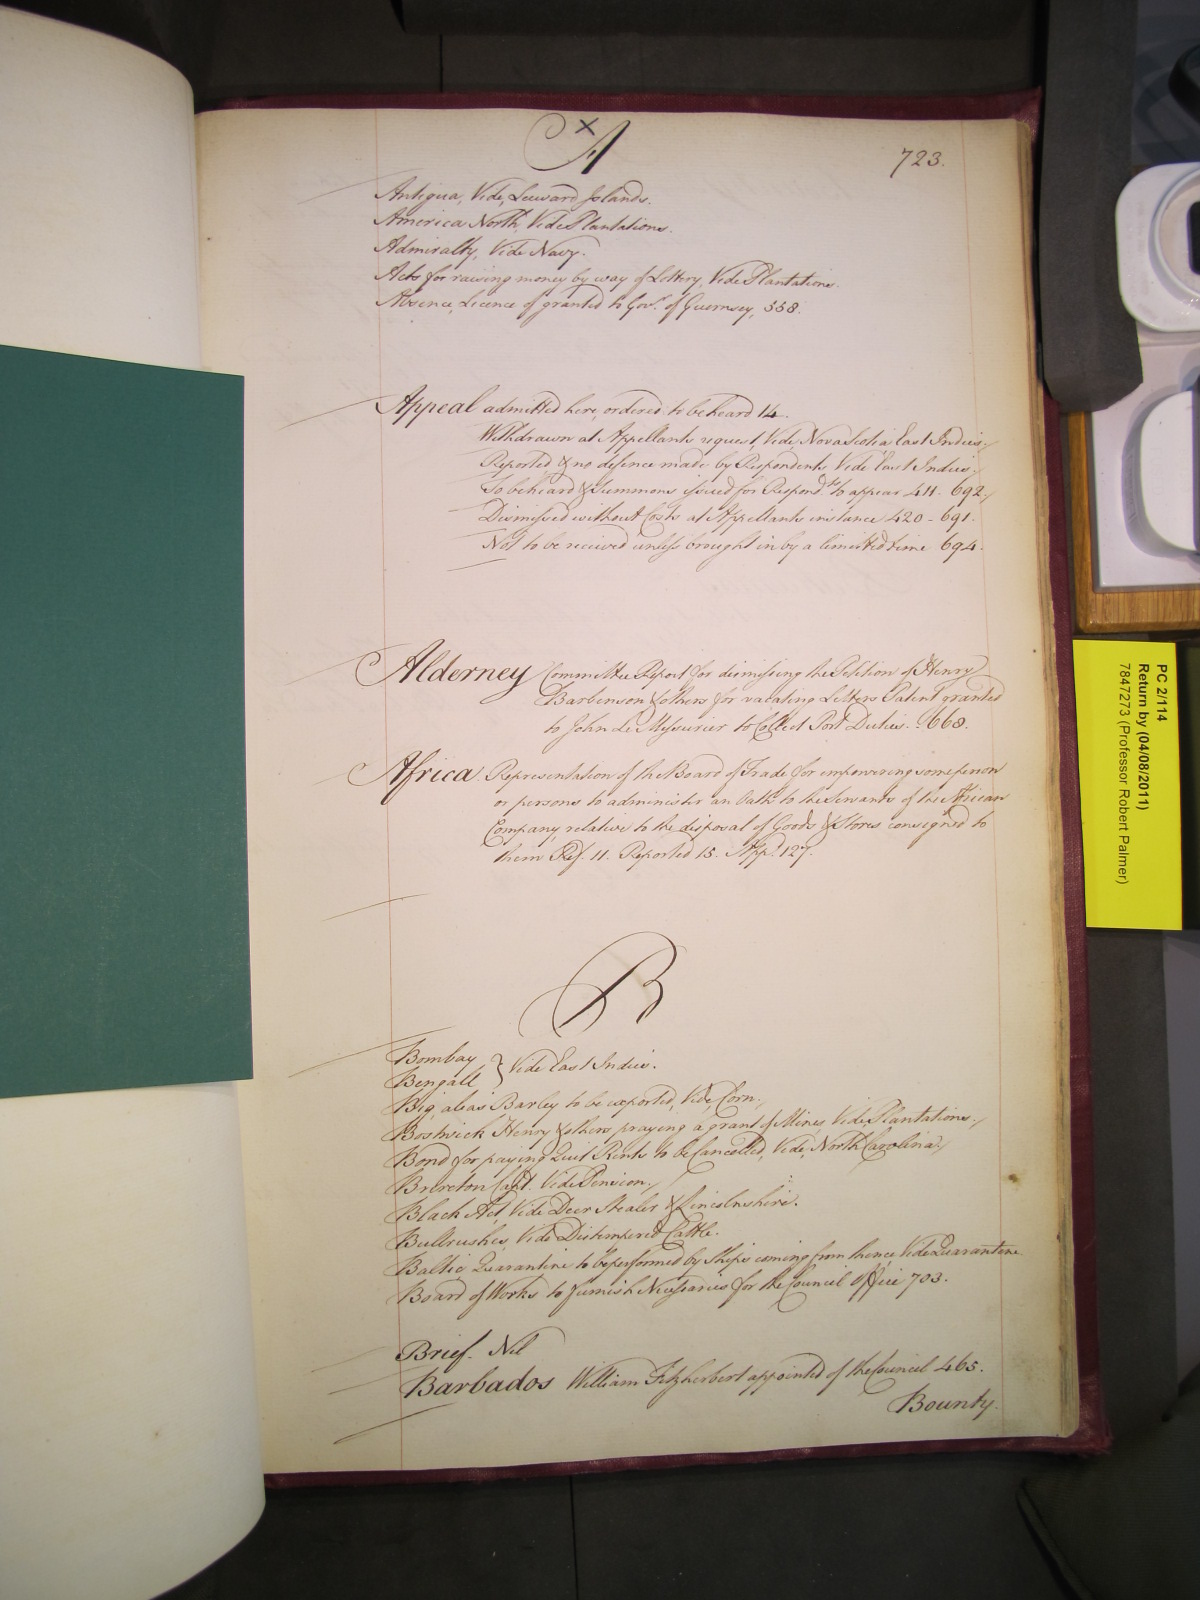 A
723.
Antigua, Vide, Leeward Islands.
America North, Vide Plantations.
Admiralty, Vide Navy.
Acts for raising money by way of Lottery, Vide Plantations.
Absence, Licence of granted to Govr. of Guernsey, 558.
Appeal admitted here, ordered to be heard 14.
Withdrawn at Appellants request, Vide Nova Scotia East Indies.
Reported, & no defence made by Respondents, Vide East Indies.
To be heard & Summons issued for Respondts. to appear 411. 692.
Dismissed without Costs at Appellants instance 420-691.
Not to be received unless brought in by a limitted time 694.
Alderney Committee Report for dismissing the Petition of Henry
Barbenson & others for vacating Letters Patent granted
to John Le Mesurier to Collect Port Duties. 668.
Africa. Representation of the Board of Trade for empowering some person
or persons to administer an Oath to the Servants of the African
Company, relative to the disposal of Goods & Stores consigned to
them Ref. 11. Reported 15. Appd. 127.
B
Bombay
Bengall } Vide East Indies.
Big, alias Barley to be exported, Vide, Corn.
Bostwick Henry & others praying a grant of Mines, Vide, Plantations.
Bond for paying Quit Rents to be Cancelled, Vide, North Carolina.
Brereton Capt. Vide Pension.
Black Act, Vide Deer Stealer & Lincolnshire.
Bullrushes, Vide Distempered Cattle.
Baltic Quarantine to be performed by Ships coming from thence Vide Quarantine
Board of Works to furnish Necessaries for the Council Office 703.
Brief. Nil
Barbados William Fitzherbert appointed of the Council 465.
Bounty.
PC 2/114
Return by (04/08/2011)
7847273 (Professor Robert Palmer)